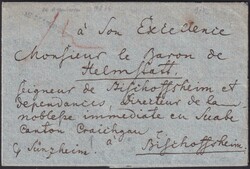 à Son Excelence
Monsieur le Baron de
Helmstatt,
Seigneur de Bischoffsheim et
dependances, Directeur de la
noblesse immediate en Suabe
Canton Craichgau
à
p Sünzheim. Bischoffsheim.